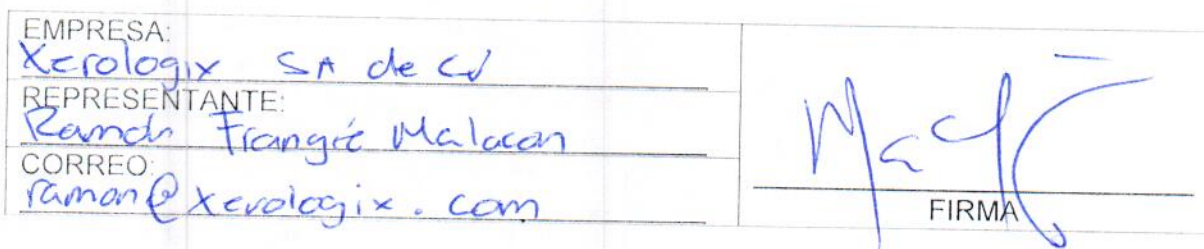 EMPRESA:
Xerologix SA de CV
REPRESENTANTE:
Ramón Frangié Malacon
CORREO:
ramon@xerologix.com
FIRMA